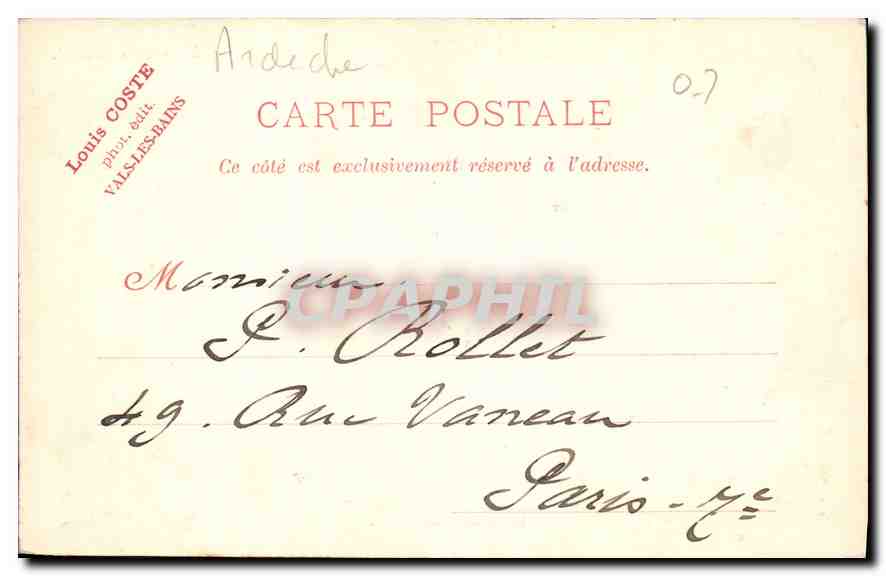 Ardeche
0-7
Louis COSTE
phot. édit.
VALS-LES-BAINS
CARTE POSTALE
Ce côté est exclusivement réservé à l'adresse.
Monsieur
CPAPHIL
P. Rollet
49. Rue Vaneau
Paris - 7e